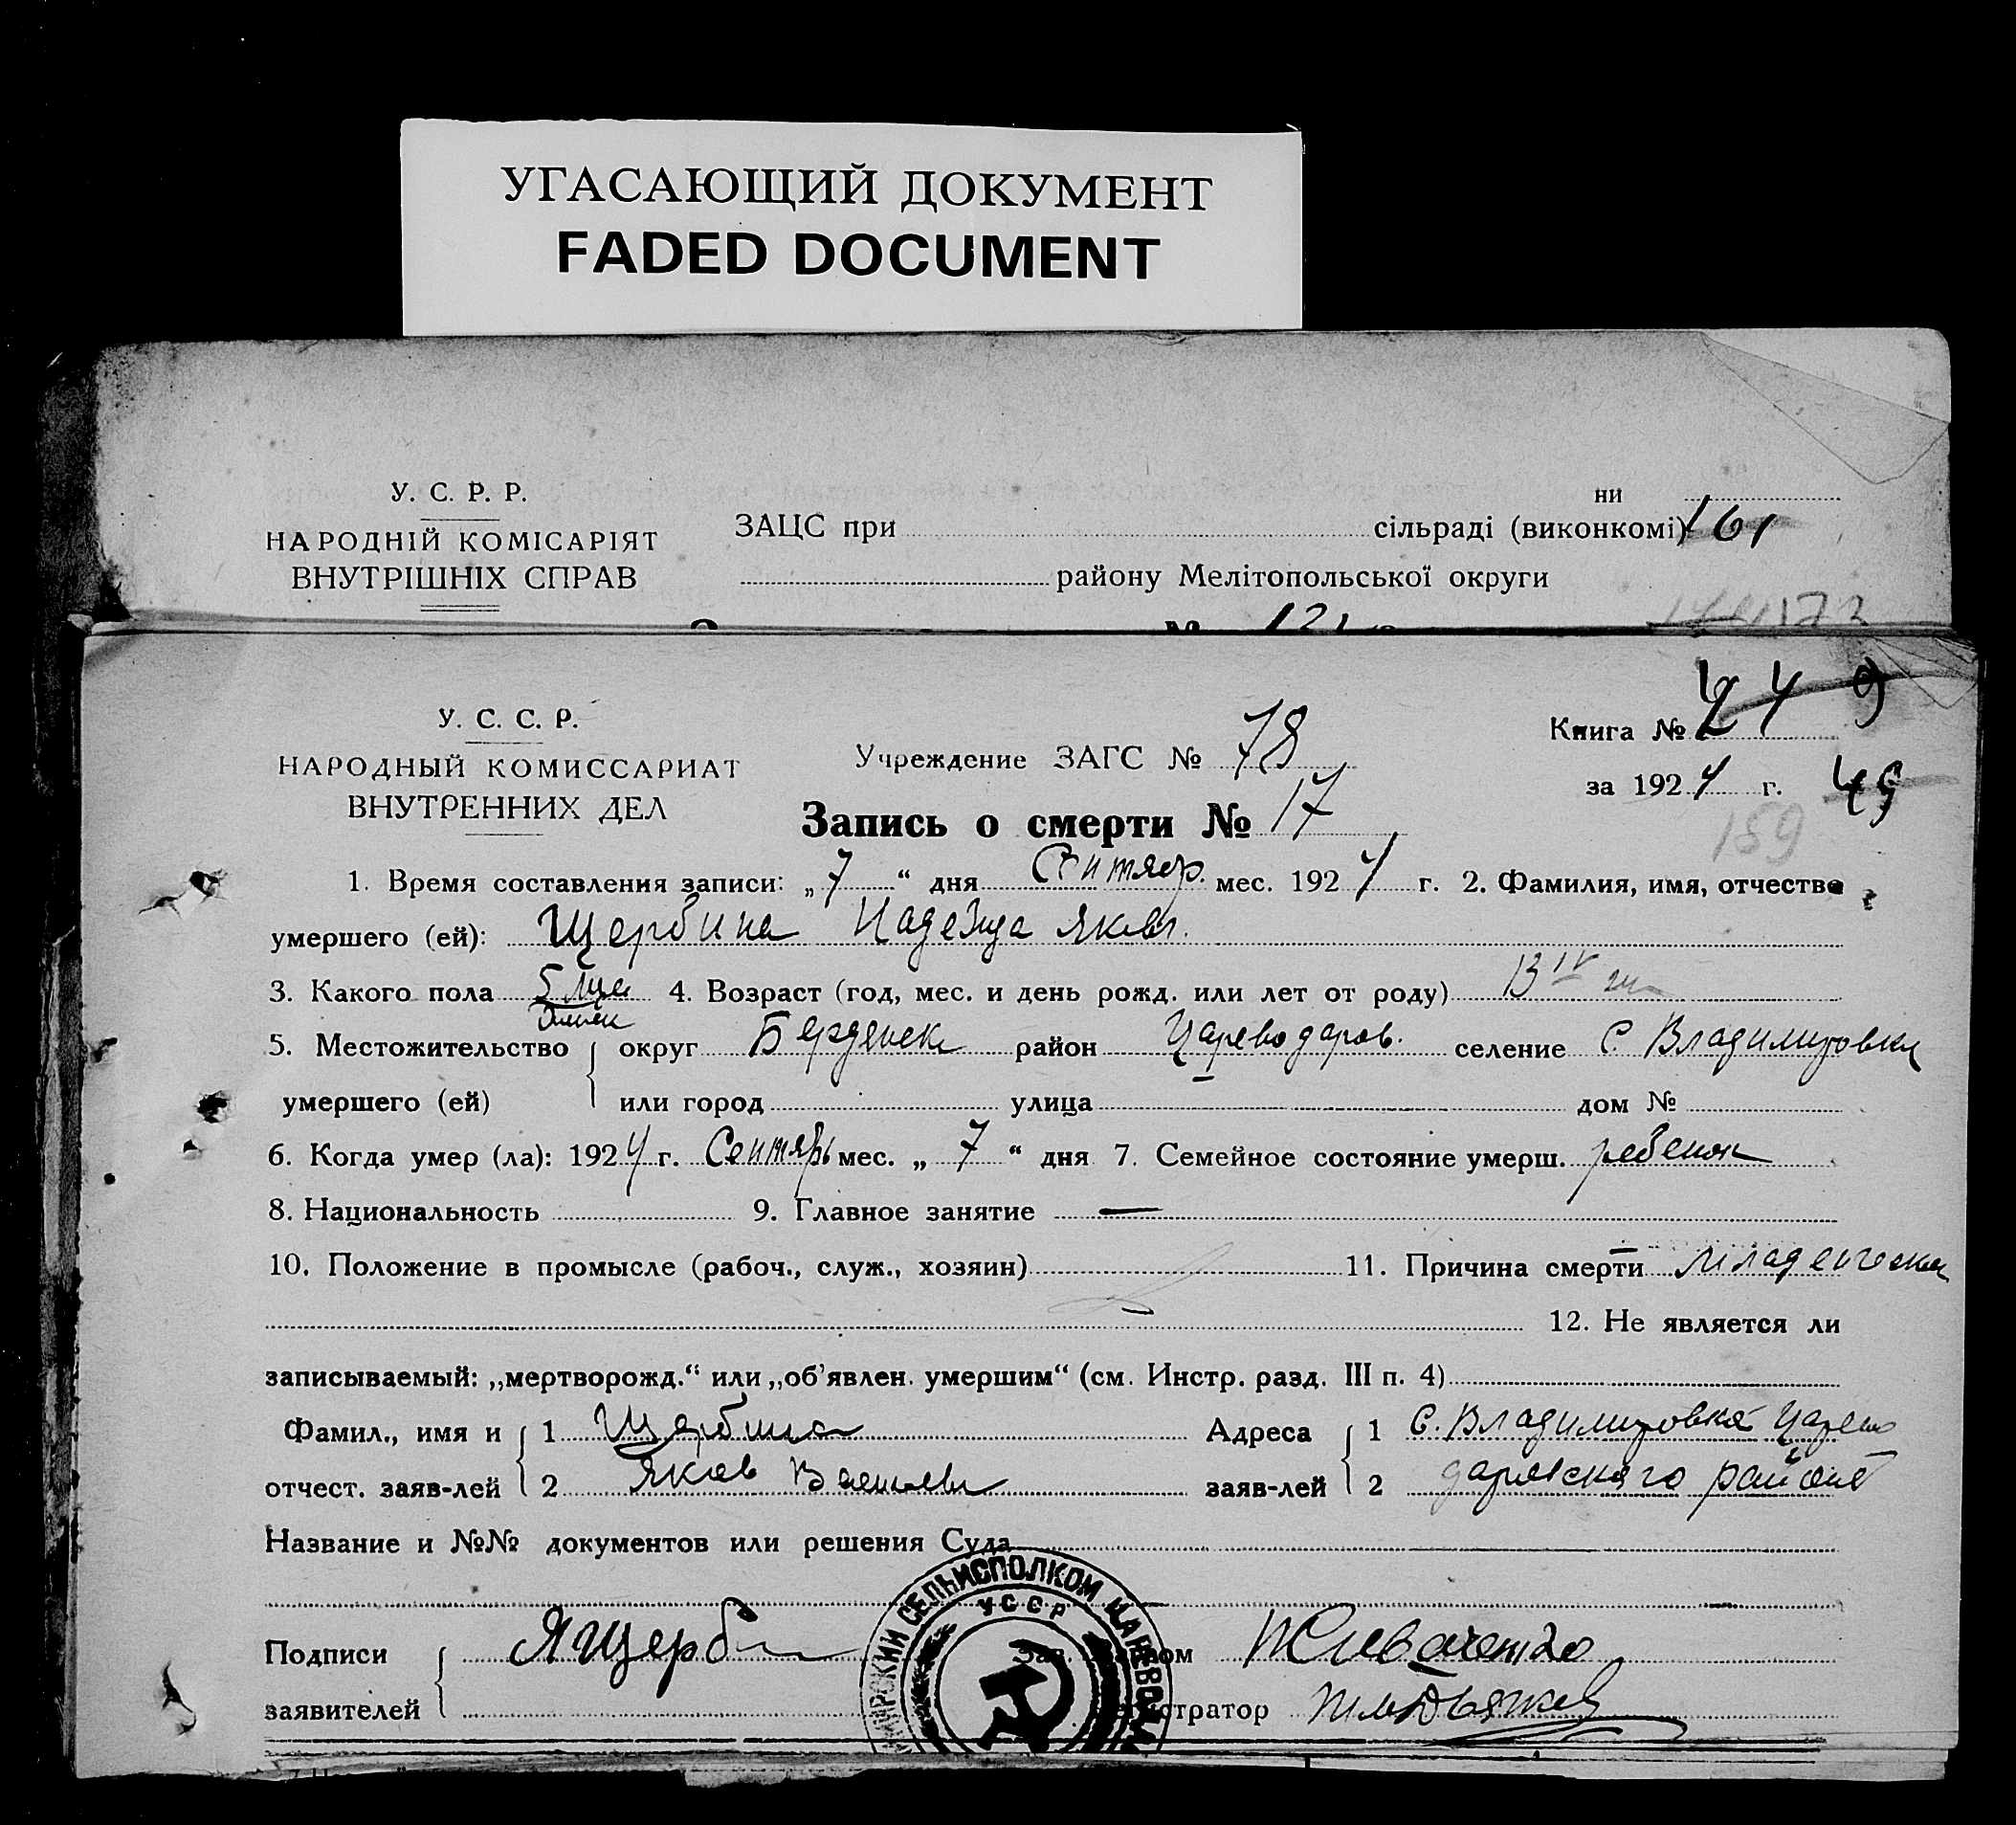 УГАСАЮЩИЙ ДОКУМЕНТ
FADED DOCUMENT
У. С. Р. Р.
НАРОДНІЙ КОМІСАРІЯТ
ВНУТРІШНІХ СПРАВ
ни
ЗАЦС при сільраді (виконкомі) 161
району Мелітопольської округи
У. С. С. Р.
НАРОДНЫЙ КОМИССАРИАТ
ВНУТРЕННИХ ДЕЛ
Учреждение ЗАГС № 78
Книга №
за 1924 г. 49
159
Запись о смерти № 17
1. Время составления записи: „7“ дня Сентябр. мес. 1924 г. 2. Фамилия, имя, отчество
умершего (ей): Щербина Надежда Яковл.
3. Какого пола 5 4. Возраст (год, мес. и день рожд. или лет от роду) 13 IV
5. Местожительство округ Бердянск район Цареводаров. селение С. Владимировка
умершего (ей) или город улица дом №
6. Когда умер (ла): 1924 г. Сентябрь мес. „7“ дня 7. Семейное состояние умерш. ребенок
8. Национальность 9. Главное занятие —
10. Положение в промысле (рабоч., служ., хозяин) 11. Причина смерти Младенческая
12. Не является ли
записываемый: „мертворожд.“ или „об'явлен. умершим“ (см. Инстр. разд. III п. 4)
Фамил., имя и 1 Щербина Адреса 1 С. Владимировка Царево
отчест. заяв-лей 2 Яков Васильев заяв-лей 2 даровского района
Название и №№ документов или решения Суда
Подписи ЯЩерб
заявителей
СЕЛЬИСПОЛКОМ ЦАРЕВО
УССР